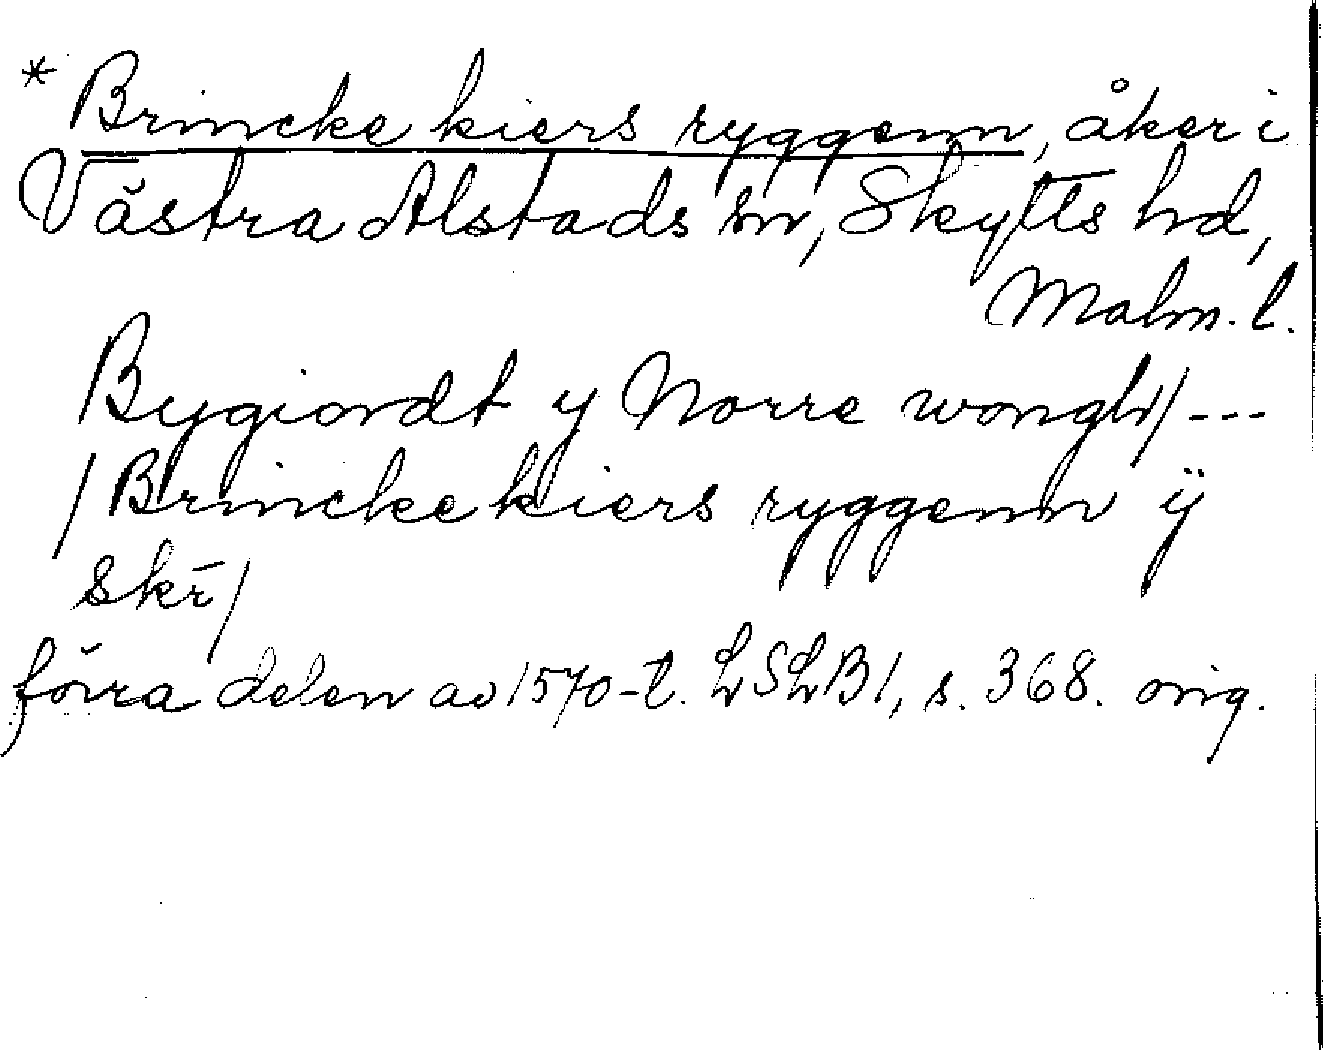 * Brincke kiers ryggenn, åker i
Västra Alstads sn, Skytts hd,
Malm. l.
Bygiordt y Norre wongh/ ---
/ Brinckekiers ryggenn ÿ
skr̄ /
förra delen av 1570-t. LSLB1, s. 368. orig.